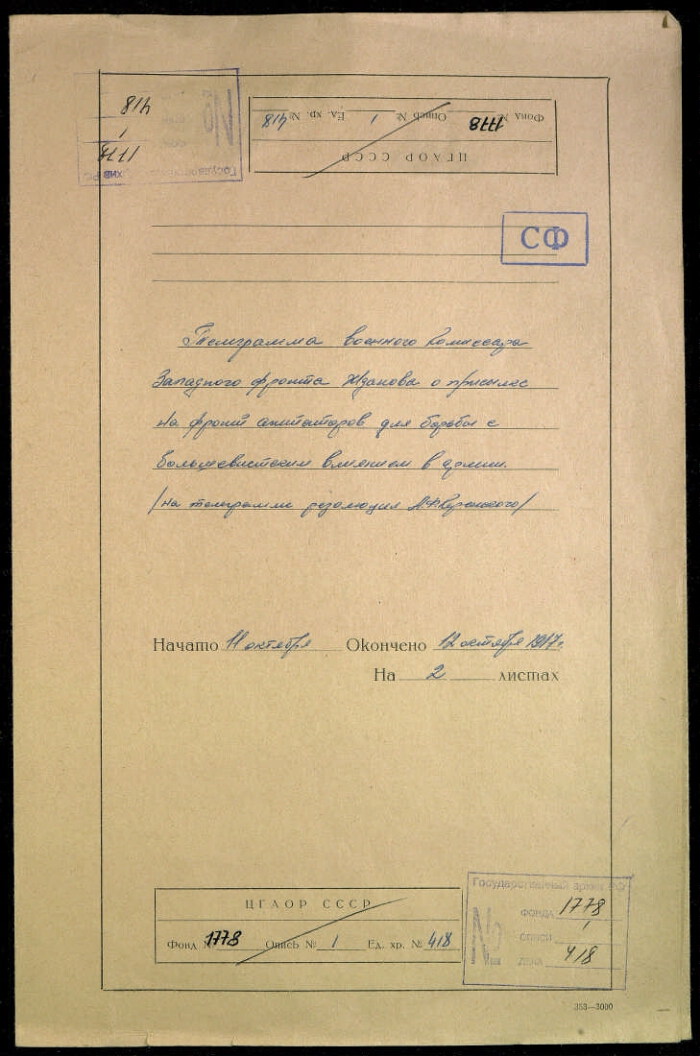 418
1
1778
№
Государственный архив РФ
Фонд № 1778 Опись № 1 Ед. хр. № 418
ЦГАОР СССР
СФ
Телеграмма военного Комиссара
Западного фронта Жданова о присылке
на фронт агитаторов для борьбы с
большевистским влиянием в армии.
/на телеграмме резолюция А.Ф.Керенского/
Начато 11 октября Окончено 12 октября 1917 г.
На 2 листах
ЦГАОР СССР
Фонд № 1778 Опись № 1 Ед. хр. № 418
Государственный архив РФ
ФОНДА 1778
№ ОПИСИ 1
ДЕЛА 418
353—3000